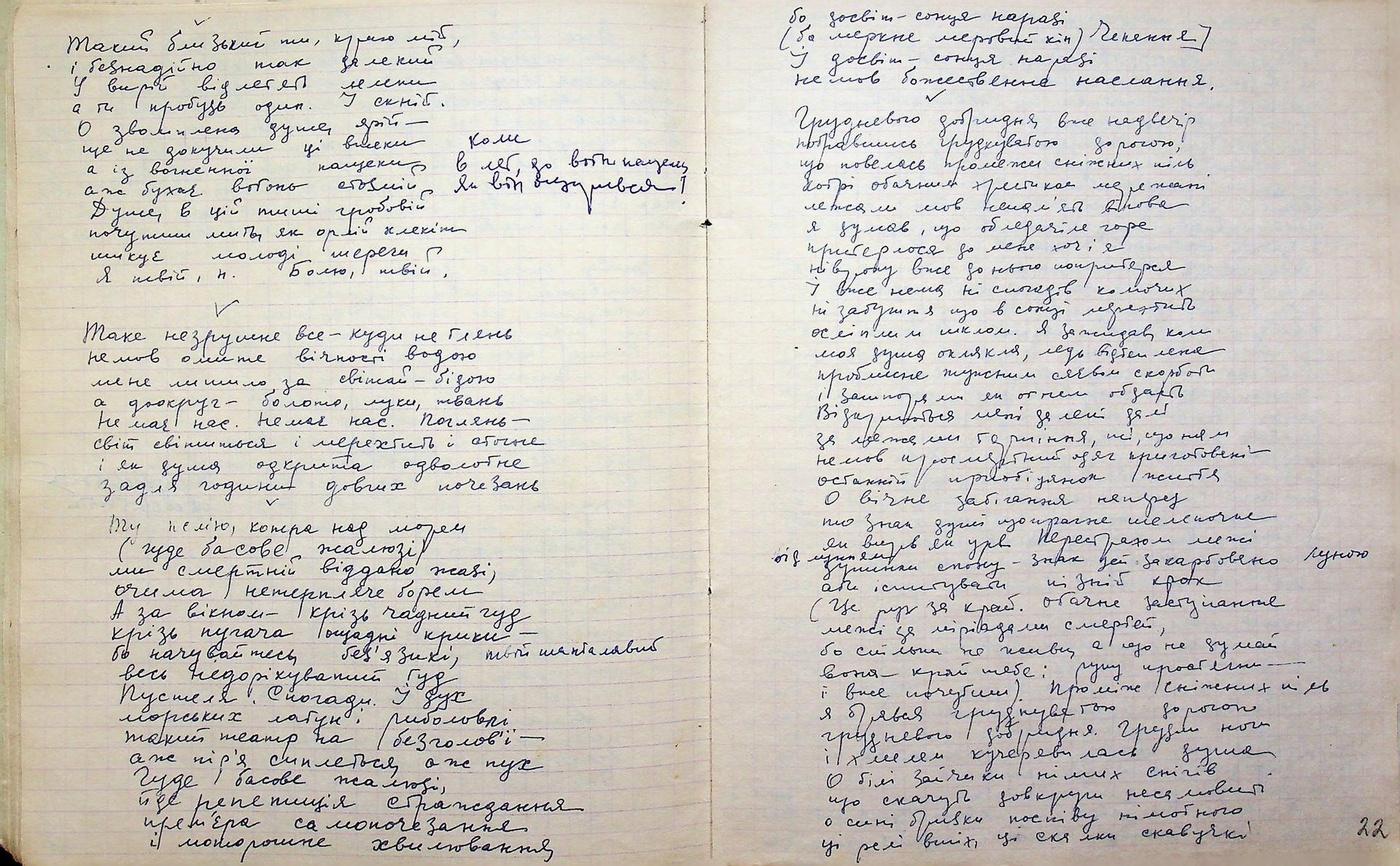 Такий близький ти, краю мій,
і безнадійно так далекий
У вирій відлетять лелеки
а ти пробудь один. І скній.
О зволжлена душа, ярій —
ще не докучили ці
а із вогненної пащеки
аж бухає вогонь
коли
в лет, до воти пащеки
Душа в цій тиші гробовій
почути мить, як орлій клекіт
шикує молоді шереги
Я твій, н. Болю, твій.
Таке незрушне все — куди не глянь
немов омите вічності водою
мене лишило за світай-бідою
а доокруг — болото, луки, твань
Немає нас. Немає нас. Поглянь —
світ світиться і мерехтить і стогне
і як душа одкрита одволотне
задля години довгих почезань
Ту пелію, котра над морем
(гуде басове жалюзі)
ми смертній віддано жазі,
очима нетерпляче борем
А за вікном — крізь чадний гуд
крізь пугача ощадні крики —
бо начувайтесь, без'язикі, твій шапталавий
весь недорікуватий гуд
Пустеля. Спогади. І дух
морських лагун і риболовлі
такий театр на безголов'ї —
аж пір'я сиплеться, аж пух
Гуде басове жалюзі,
йде репетиція страждання
прем'єра самопочезання
і моторошне хвилювання
бо досвіт-сонця наразі
(ба меркне меровий кін) Чекення]
І досвіт-сонця наразі
немов божественне наслання.
Грудневого добридня вже надвечір
побравшись грудкуватою дорогою,
що повелась промежи сніжних піль
котрі обачним хрестиком мережані
лежали мов непам'ять вікова
я думав, що обледеніле горе
притерлося до мене хоч і я
нівроку вже до нього попритерся
І вже нема ні спогадів колючих
ні забуття що в сонці мерехтить
осліплим шклом. Я зажидав коли
моя душа оклякла, ледь відтеплена
проблисне тужним сяєвом скорботи
і запопади як огнем обдасть
Відкриються мені далекі далі
за межами терпіння, ті, що нам
немов посмертний одяг приготовані
останній приобіцянок життя
О вічне забігання наперед
то знак душі що прагне
як вирв як урв Перестрахом межі
від лункени
душинки спокну — знак цей закарбовано луною
аби існтувати пізній крок
(Це рух за край. обачне заступання
межі за міріадами смертей,
бо скільки не живи, а що не думай
вона — край тебе: руку простягни —
і вже почутим) Проміж сніжних піль
я брався грудкуватою дорогою
грудневого добридня. Грузли ноги
і хмелем кучерявилась душа
О білі зайчики німих снігів
що скачуть довкруги несамовиті
о сині бурмаки поспіву німотного
ці релі вниз, ці скалки скавучкі
22